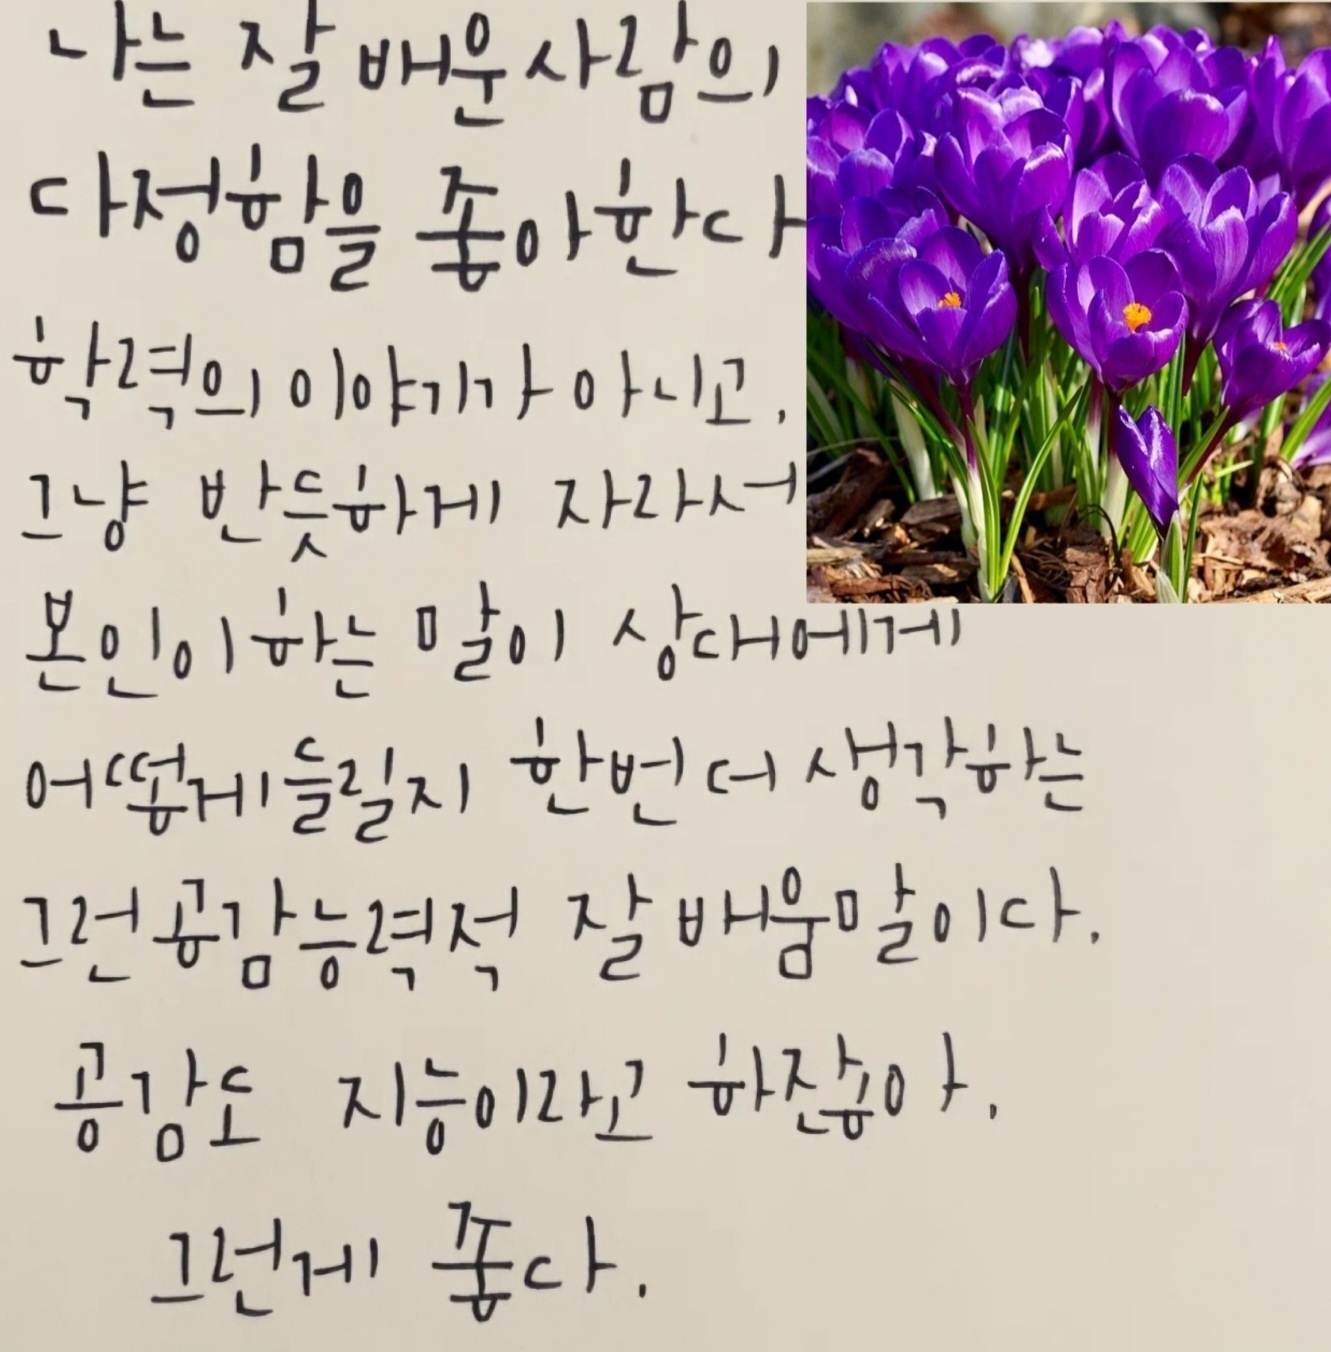 나는 잘 배운 사람의
다정함을 좋아한다
학력의 이야기가 아니고.
그냥 반듯하게 자라서
본인이 하는 말이 상대에게
어떻게 들릴지 한번 더 생각하는
그런 공감능력적 잘 배움말이다.
공감도 지능이라고 하잖아.
그런게 좋다.